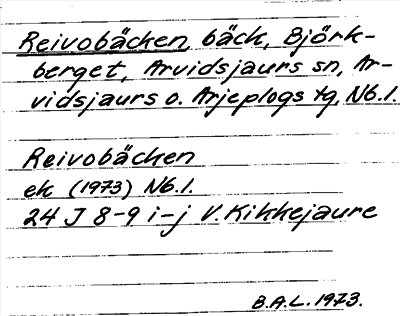 Reivobäcken, bäck, Björk-
berget, Arvidsjaurs sn, Ar-
vidsjaurs o. Arjeplogs tg, Nb.l.
Reivobäcken
ek (1973) Nb.l.
24 J 8-9 i-j V. Kikkejaure
B.A.L. 1973.